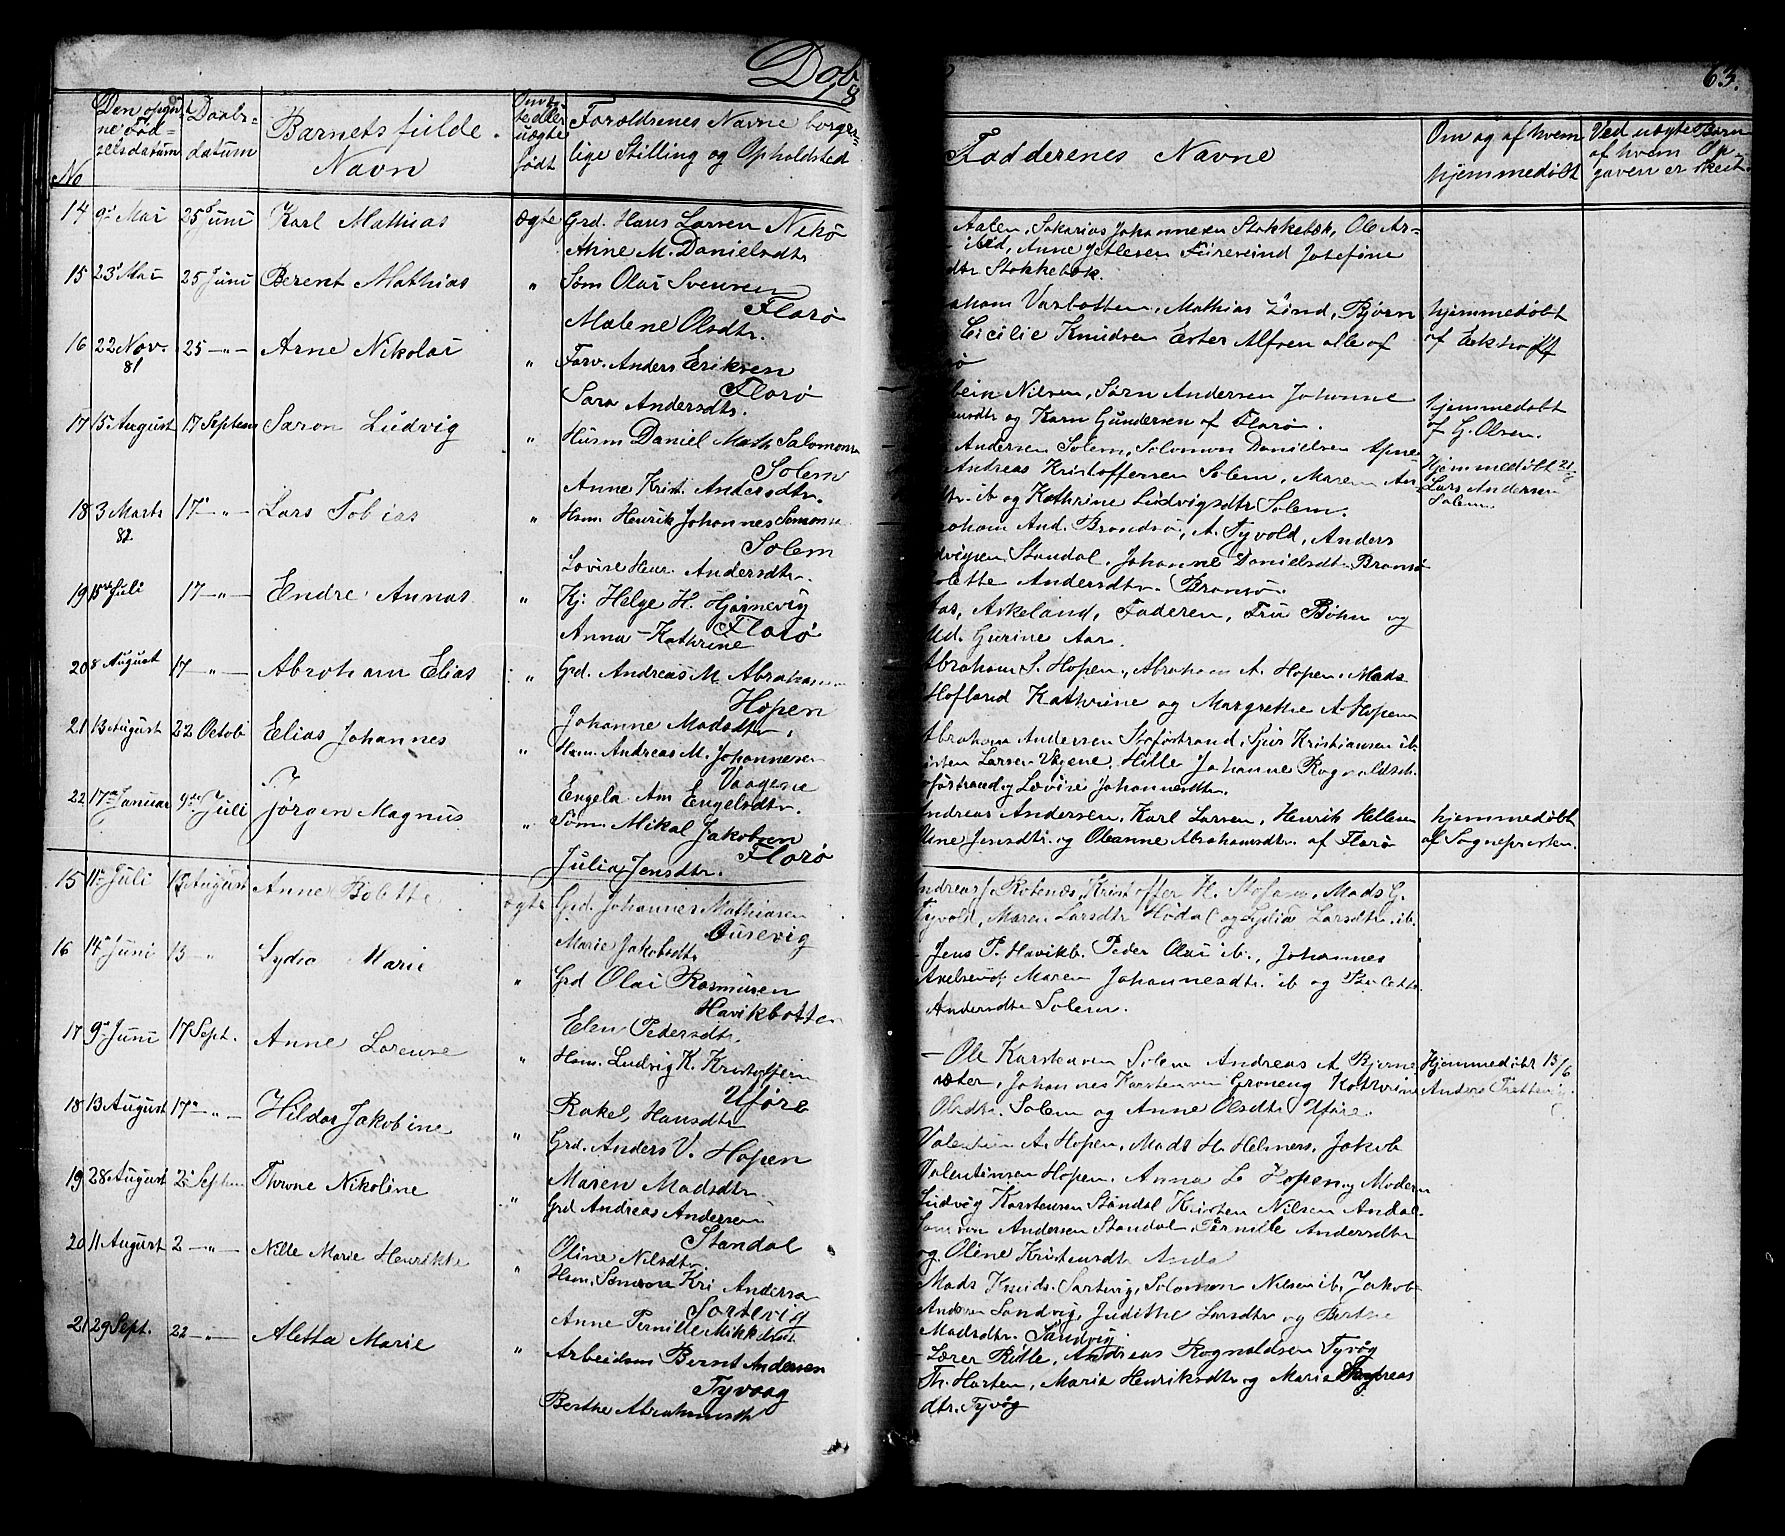 Døb
63.
No
Den opgiv-
ne Fød-
selsdatum
Daabs-
datum
Barnets fulde
Navn
Om
ægte eller
uægte
født
Forældrenes Navne borger-
lige Stilling og Opholdsted
Fadderenes Navne
Om og af hvem
hjemmedøbt
Ved uægte Børn
af hvem Op-
gaven er skeet.
14 9de Mai 25 Juni Karl Mathias ægte Grd. Hans Larsen Nekø
Anne M. Danielsdtr.
Aalen, Sakarias Johannesen Stokkebæk, Ole
Anne Josefine
Stokkebæk.
15 23de Mai 25 Juni Berent Mathias " Søm Olai Svensen
Florø
Malene Olsdtr.
Varbotten, Mathias Lind, Bjørn
Cicilie Knudsen Ester Alfsen alle af
hjemmedøbt
af
16 22 Nov. 81 25 -"- Arne Nikolai " Forv. Anders Eriksen
Florø
Sara Andersdtr.
Nilsen, Sørn Andersen Johanne
og Karn Gundersen af Florø.
hjemmedøbt
af G. Olsen.
17 15de August 17 Septem Saron Ludvig " Husm Daniel Math Salomons
Solem
Anne Krist. Andersdtr.
Andersen Solem, Solomon Danielsen
Andreas Kristoffersen Solem, Maren An-
dtr. ib og Kathrine Ludvigsdtr Solem.
Hjemmedøbt 21/8
Lars Andersen
Solem.
18 3 Marts 82 17de -"- Lars Tobias " Hsm. Henrik Johannes Simons
Solem
Lovise Henr. Andersdtr.
And. Brandsø, A. Tyvold, Anders
Standal, Johanne Danielsdtr Bransø
Andersdtr. Bransø.
19 15de Juli 17 -"- Endre Annas " Kj. Helge H. Hjørnevig
Florø
Anna Kathrine
Aas, Askeland, Faderen, Fru Bøhn og
Md. Gurine Aar.
20 8 August 17 -"- Abraham Elias " Grd. Andreas M. Abraham
Hopen
Johanne Madsdtr.
Abraham S. Hopen, Abraham A. Hopen, Mads
Hofland Kathrine og Margrethe A Hopen
21 13 August 22 Octob Elias Johannes " Hsm. Andreas M. Johannesen
Vaagene
Engela Am Engelsdtr.
Abraham Andersen Stofstrand, Sjur Kristiansen ib.
Larsen Hille Johanne Rognaldsdt.
og Lovise Johannesdtr.
22 17de Januar 9de Juli Jørgen Magnus " Søm. Mikal Jakobsen
Florø
Julia Jensdtr.
Andreas Andersen, Karl Larsen, Henrik Hellem
Oline Jensdtr. og Oleanne Abrahamsdtr. af Florø
hjemmedøbt
af Sognepresten.
15 11te Juli 13 August Anne Bolette ægte Grd. Johannes Mathiasen
Husevig
Marie Jakobsdtr
Andreas J. Rotenæs, Kristoffer H. Mads G.
Tyvold, Maren Larsdtr Hødal og Lydia Larsdtr. ib.
16 14de Juni 13 " Lydia Marie " Grd Olai Rasmusen
Havikbotten
Elen Pedersdtr.
Jens P. Havikb. Peder Olai ib., Johannes
Maren Johannesdtr. ib og Bolette
Andersdtr Solem.
17 9de Juni 17 Sept. Anne Lorense " Hsm. Ludvig K. Kristoffersn
Uføre
Rakel Hansdtr
Ole Karstensen Solem Andreas A. Bjerne
sæter, Johannes Karstensen Grøneng Kathrine
Olsdtr. Solem og Anne Olsdtr Uføre.
Hjemmedøbt 13/6
Anders
18 13 August 17de -"- Hilda Jakobine " Grd. Anders V. Hopen
Maren Madsdtr.
Valentin A. Hopen, Mads H. Helnes, Jakob
Valentinsen Hopen. Anna L Hopen og Moderen
19 28 August 2 Septem Thrine Nikoline " Grd Andreas Andersen
Standal
Oline Nilsdtr.
Ludvig Karstensen Standal Kirsten Nilsen Andal.
Andersen Standal, Pernille Andersdtr
og Oline Kristensdtr Andal
20 11 August 2 -"- Nille Marie Henrikke " Hsm. Simson Kri Anderson
Sortevig
Anne Pernille Mikkelsdt
Mads Knuds. Sortevig, Solomon Nilsen ib. Jakob
Andersen Sandvig, Judithe Larsdtr og Berthe
Madsdtr. Sandvig
21 29 Sept. 22 -"- Aletta Marie " Arbeidsm Bernt Andersen
Tyvaag
Berthe Abrahamsdtr
Lærer Ritle, Andreas Rognaldsen Tyvøg
Th. Horten, Maria Henriksdtr og Maria Andreas
dtr. Tyvøg